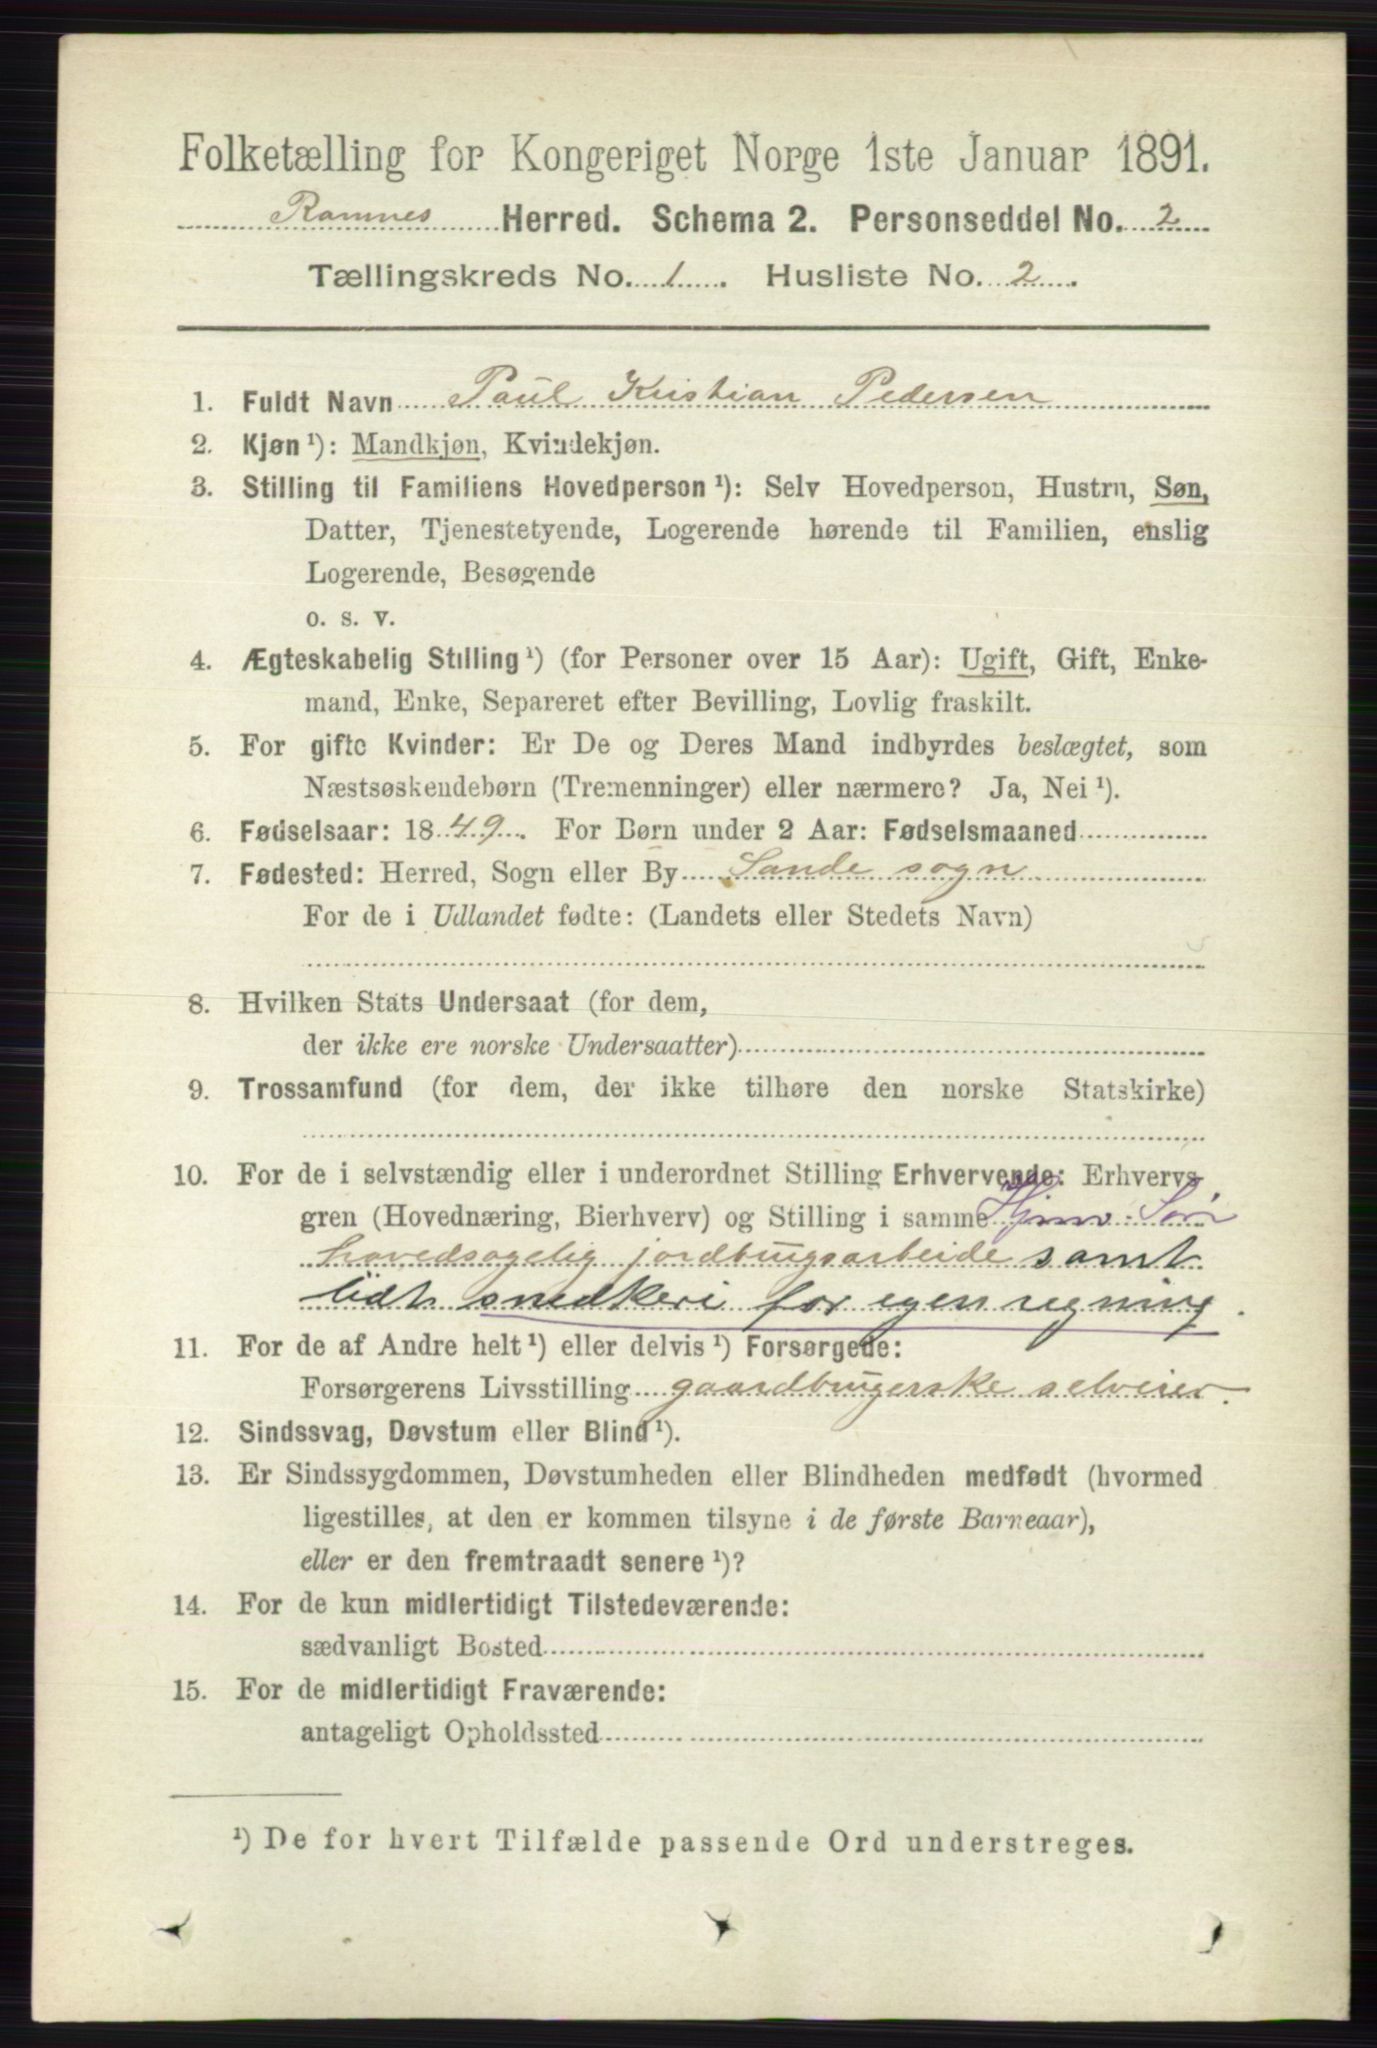 Folketælling for Kongeriget Norge 1ste Januar 1891.
Ramnes Herred. Schema 2. Personseddel No. 2
Tællingskreds No. 1. Husliste No. 2.
1. Fuldt Navn Paul Kristian Pedersen
2. Kjøn ¹): Mandkjøn, Kvindekjøn.
3. Stilling til Familiens Hovedperson ¹): Selv Hovedperson, Hustru, Søn,
Datter, Tjenestetyende, Logerende hørende til Familien, enslig
Logerende, Besøgende
o. s. v.
4. Ægteskabelig Stilling ¹) (for Personer over 15 Aar): Ugift, Gift, Enke-
mand, Enke, Separeret efter Bevilling, Lovlig fraskilt.
5. For gifte Kvinder: Er De og Deres Mand indbyrdes beslægtet, som
Næstsøskendebørn (Tremenninger) eller nærmere? Ja, Nei ¹).
6. Fødselsaar: 1849. For Børn under 2 Aar: Fødselsmaaned
7. Fødested: Herred, Sogn eller By Sande sogn
For de i Udlandet fødte: (Landets eller Stedets Navn)
8. Hvilken Stats Undersaat (for dem,
der ikke ere norske Undersaatter)
9. Trossamfund (for dem, der ikke tilhøre den norske Statskirke)
10. For de i selvstændig eller i underordnet Stilling Erhvervende: Erhvervs-
gren (Hovednæring, Bierhverv) og Stilling i samme
hovedsagelig jordbrugsarbeide samt
lidt snedkeri for egen regning.
11. For de af Andre helt ¹) eller delvis ¹) Forsørgede:
Forsørgerens Livsstilling gaardbrugerske selveier.
12. Sindssvag, Døvstum eller Blind ¹).
13. Er Sindssygdommen, Døvstumheden eller Blindheden medfødt (hvormed
ligestilles, at den er kommen tilsyne i de første Barneaar),
eller er den fremtraadt senere ¹)?
14. For de kun midlertidigt Tilstedeværende:
sædvanligt Bosted
15. For de midlertidigt Fraværende:
antageligt Opholdssted
¹) De for hvert Tilfælde passende Ord understreges.